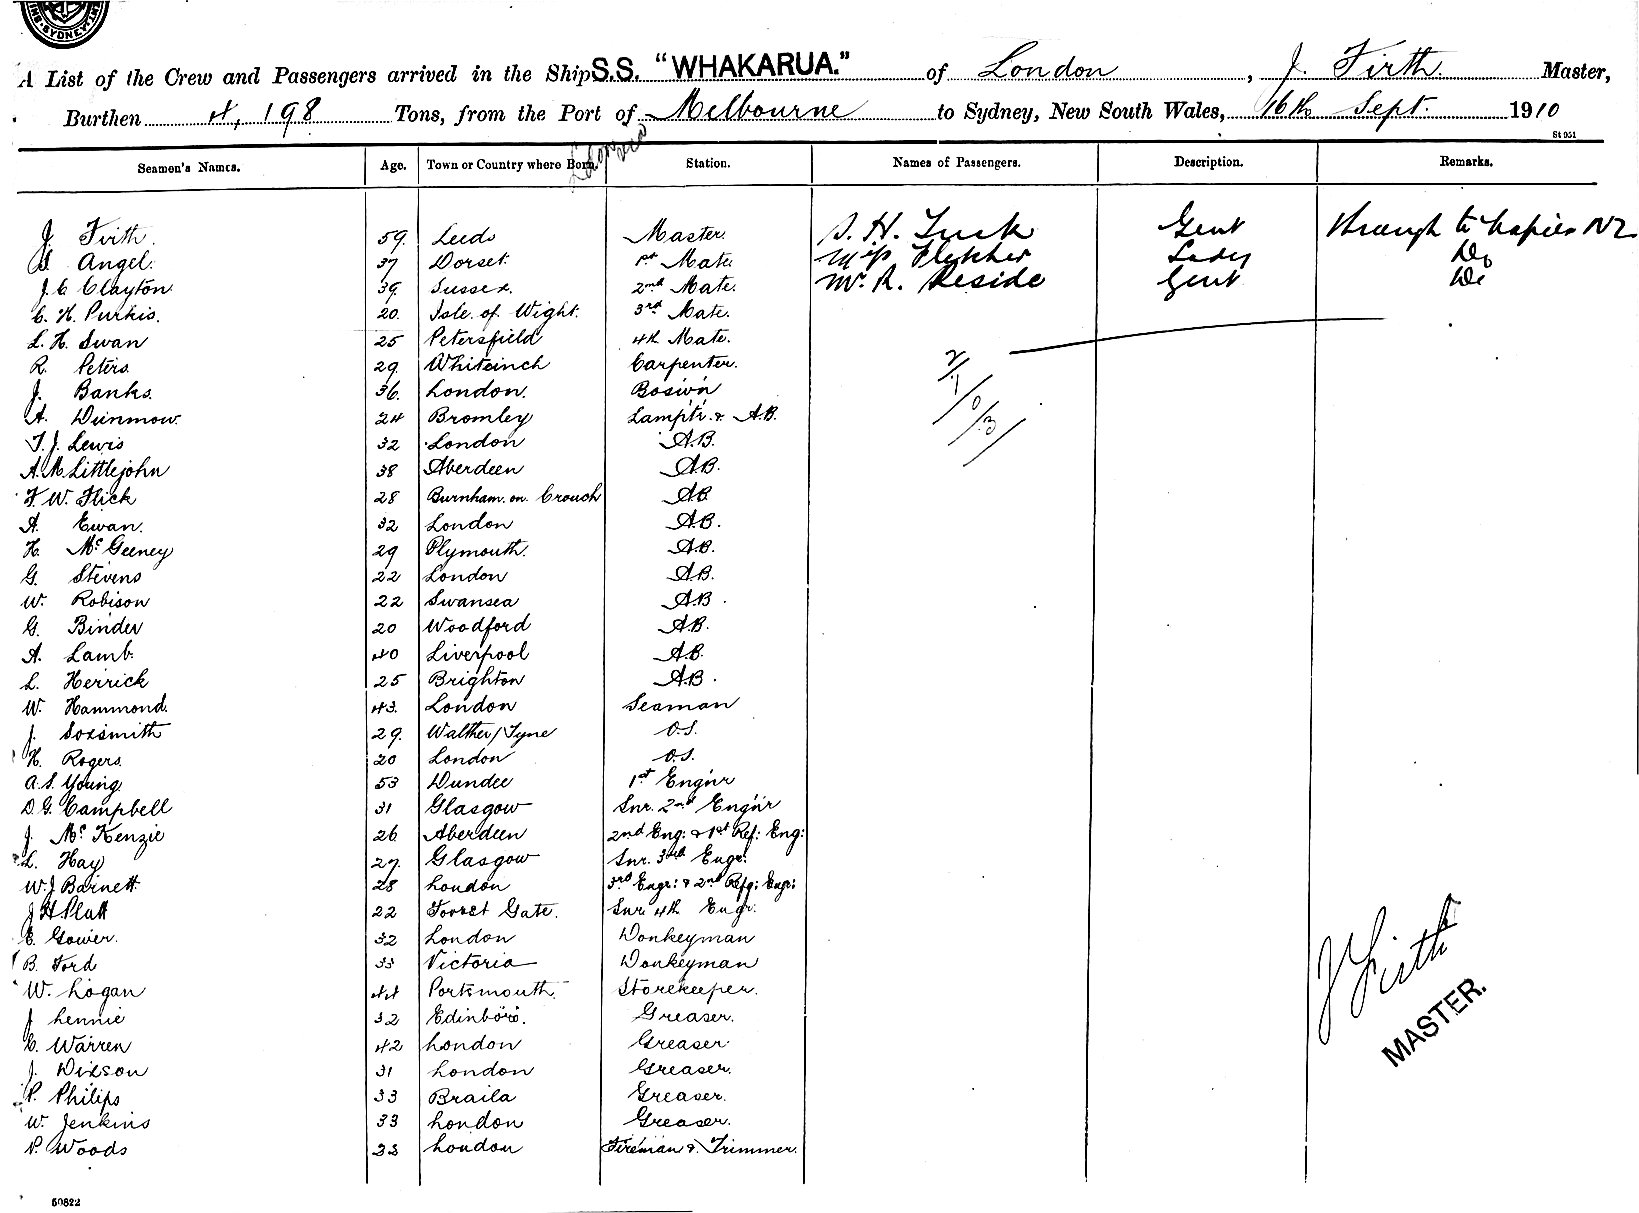 SYDNEY
A List of the Crew and Passengers arrived in the Ship S.S. "WHAKARUA." of London, J. Firth. Master,
Burthen 4,198 Tons, from the Port of Melbourne to Sydney, New South Wales, 16th Sept. 1910
St 051
Seamen's Names. Age. Town or Country where Born. Station. Names of Passengers. Description. Remarks.
J. Firth. 59. Leeds Master. S. H. Tuck Gent through to Napier NZ
Angel. 37 Dorset. 1st Mate Miss Fletcher Lady Do
J. C. Clayton 39. Sussex. 2nd Mate. Mr. R. Reside Gent Do
C. H. Purkis. 20. Isle. of Wight. 3rd Mate.
L. H. Swan 25 Petersfield 4th Mate.
R. Peters. 29. Whiteinch Carpenter.
J. Banks. 36. London. Bosw'n
A. Dunmow. 24 Bromley Lamptr. & A.B.
T. J. Lewis 32 London A.B.
A. M. Littlejohn 38 Aberdeen A.B.
F. W. Flick 28 Burnham. on Crouch A.B.
A. Ewan. 32 London A.B.
H. McGeeney 29 Plymouth. A.B.
G. Stevens 22 London A.B.
W. Robison 22 Swansea A.B.
G. Binder 20 Woodford A.B.
A. Lamb. 40 Liverpool A.B.
L. Herrick 25 Brighton A.B.
W. Hammond. 43. London Seaman
J. Soxsmith 29. Walther/Tyne O.S.
H. Rogers. 20 London O.S.
A. S. Young 53 Dundee 1st Engn'r
D. G. Campbell 31 Glasgow Snr. 2nd Engn'r
J. McKenzie 26 Aberdeen 2nd Eng: & 1st Ref: Eng:
L. Hay 27. Glasgow Snr. 3rd Engr.
W. J Barnett 28 London 3rd Engr: & 2nd Refg: Engr:
J H Platt 22 Forest Gate. Snr 4th Engr.
E. Gower. 32 London Donkeyman
B. Ford 33 Victoria Donkeyman
W. Logan 44 Portsmouth. Storekeeper.
J Lennie 32 Edinboro. Greaser.
C. Warren 42 London Greaser
J. Dixson 31 London Greaser.
P. Philips 33 Braila Greaser.
W. Jenkins 33 London Greaser.
P. Woods 33 London Fireman & Trimmer.
2/1/0/3/
J Firth
MASTER.
50822